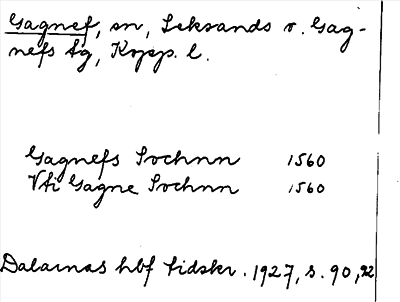 Gagnef, sn, Leksands o. Gag-
nefs tg, Kopp. l.
Gagnefs Sochnn 1560
Vti Gagne Sochnn 1560
Dalarnas hbf tidskr. 1927, s. 90, 92